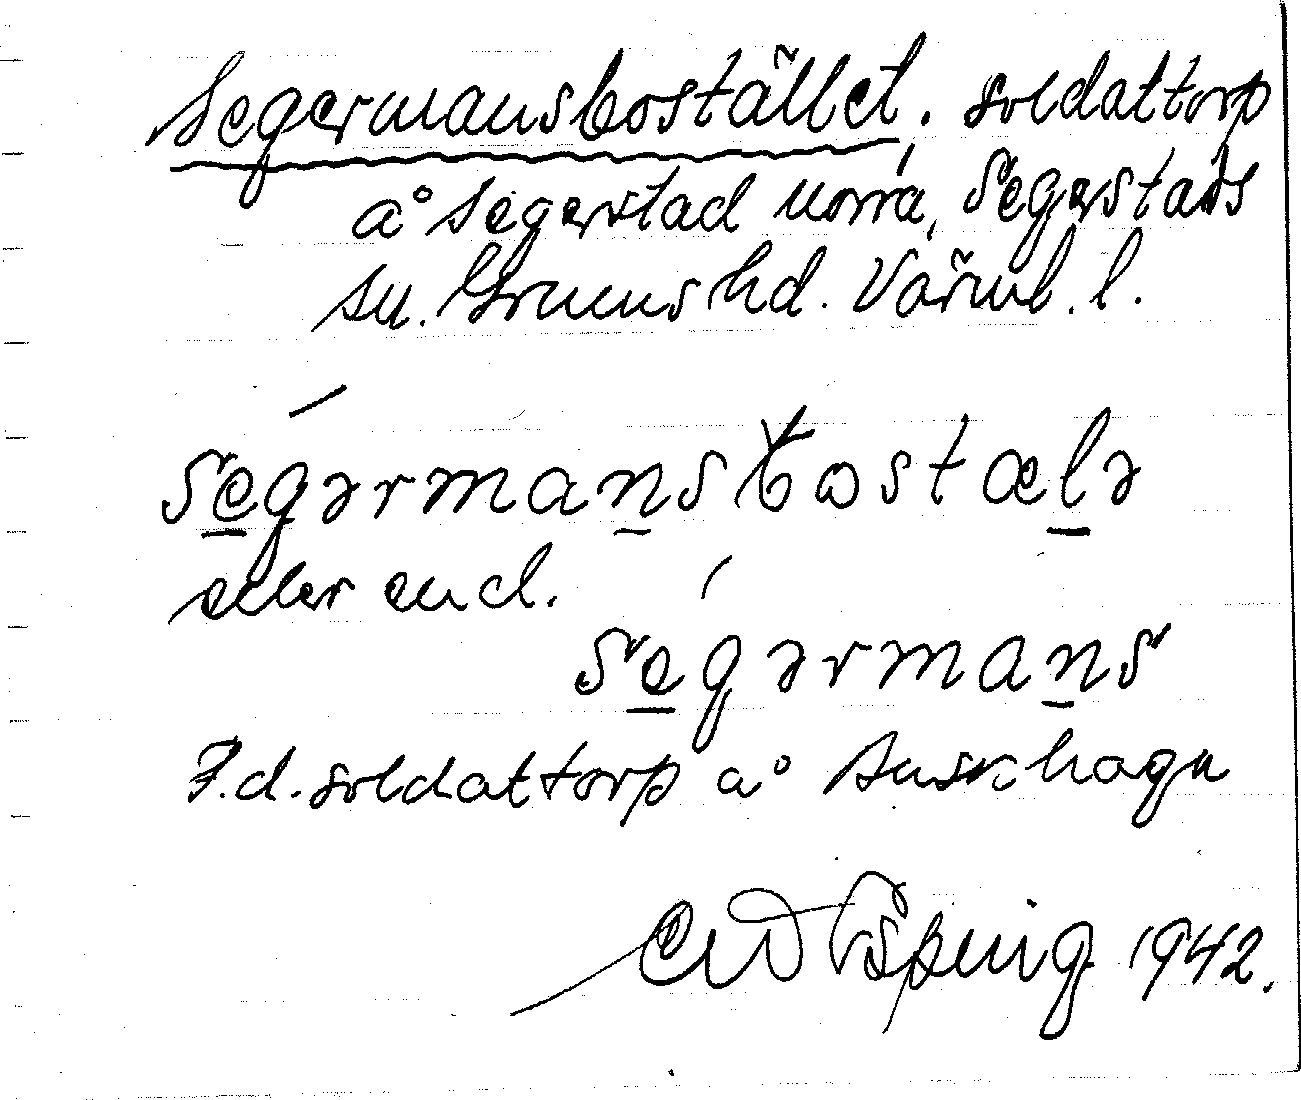 Segermansbostället, soldattorp
å Segerstad norra, Segerstads
sn. Grums hd. Värml. l.
segərmansbostælə
eller end.
segərmans
F.d. soldattorp å
1942.